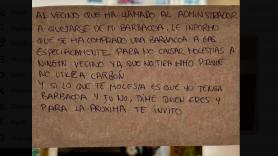 AL VECINO QUE HA LLAMADO AL ADMINISTRADOR
A QUEJARSE DE MI BARBACOA, LE INFORMO
QUE SE HA COMPRADO UNA BARBACOA A GAS
ESPECIALMENTE PARA NO CAUSAR MOLESTIAS A
NINGÚN VECINO YA, QUE NO TIRA HUMO PORQUE
NO UTILIZA CARBÓN
Y SI LO QUE TE MOLESTA ES QUE YO TENGA
BARBACOA Y TU NO, DIME QUIEN ERES Y
PARA LA PROXIMA TE INVITO